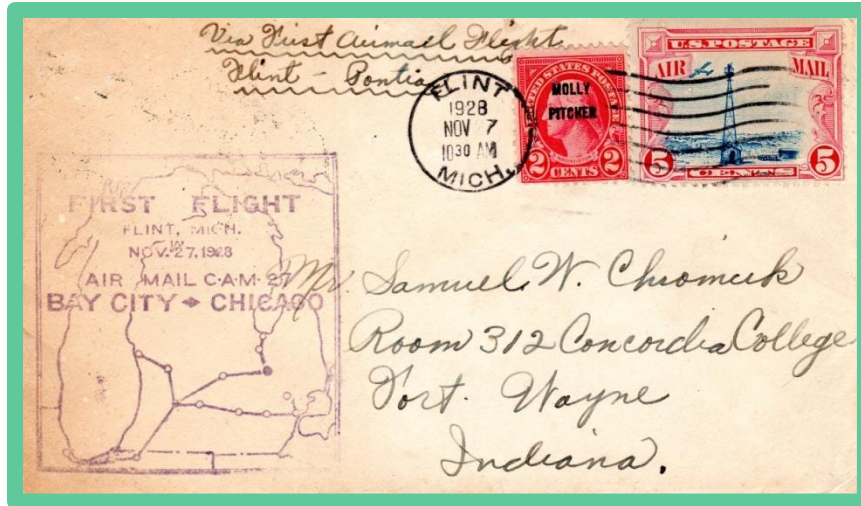 Via First Airmail Flight
Flint - Pontia
FLINT
1928
NOV 7
10 30 AM
MICH.
UNITED STATES POSTAGE
MOLLY
PITCHER
2 2
CENTS
U.S. POSTAGE
AIR MAIL
5 5
CENTS
FIRST FLIGHT
FLINT, MICH.
NOV. 27, 1928
AIR MAIL C·A·M· 27
BAY CITY CHICAGO
Mr. Samuel W. Chromiuk
Room 312 Concordia College
Fort. Wayne
Indiana.